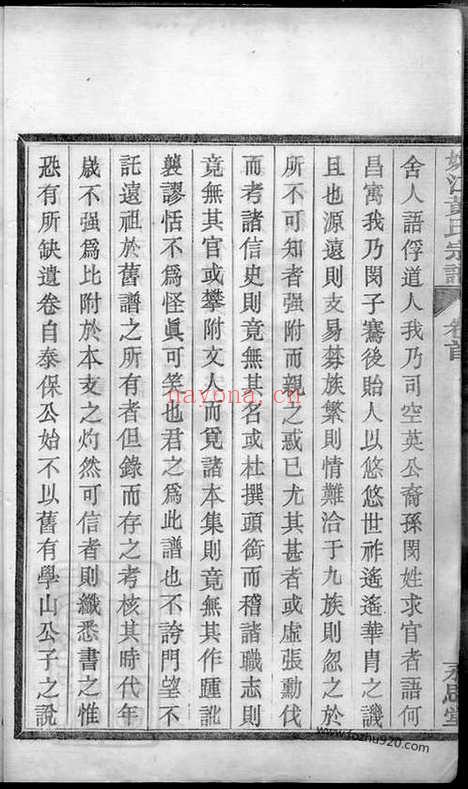 姚江黃氏宗譜
卷首
永思堂
舍人語俘道人我乃司空英公裔孫閔姓求官者語何
昌寓我乃閔子騫後貽人以悠悠世祚遙遙華冑之譏
且也源遠則支易棼族繁則情難洽于九族則忽之於
所不可知者强附而親之惑已尤其甚者或虛張勳伐
而考諸信史則竟無其名或杜撰頭銜而稽諸職志則
竟無其官或攀附文人而覓諸本集則竟無其作踵訛
襲謬恬不爲怪眞可笑也君之爲此譜也不誇門望不
託遠祖於舊譜之所有者但錄而存之考核其時代年
歲不强爲比附於本支之灼然可信者則纖悉書之惟
恐有所缺遺卷自泰保公始不以舊有學山公子之說
nayona.cn
www.fozhu920.com